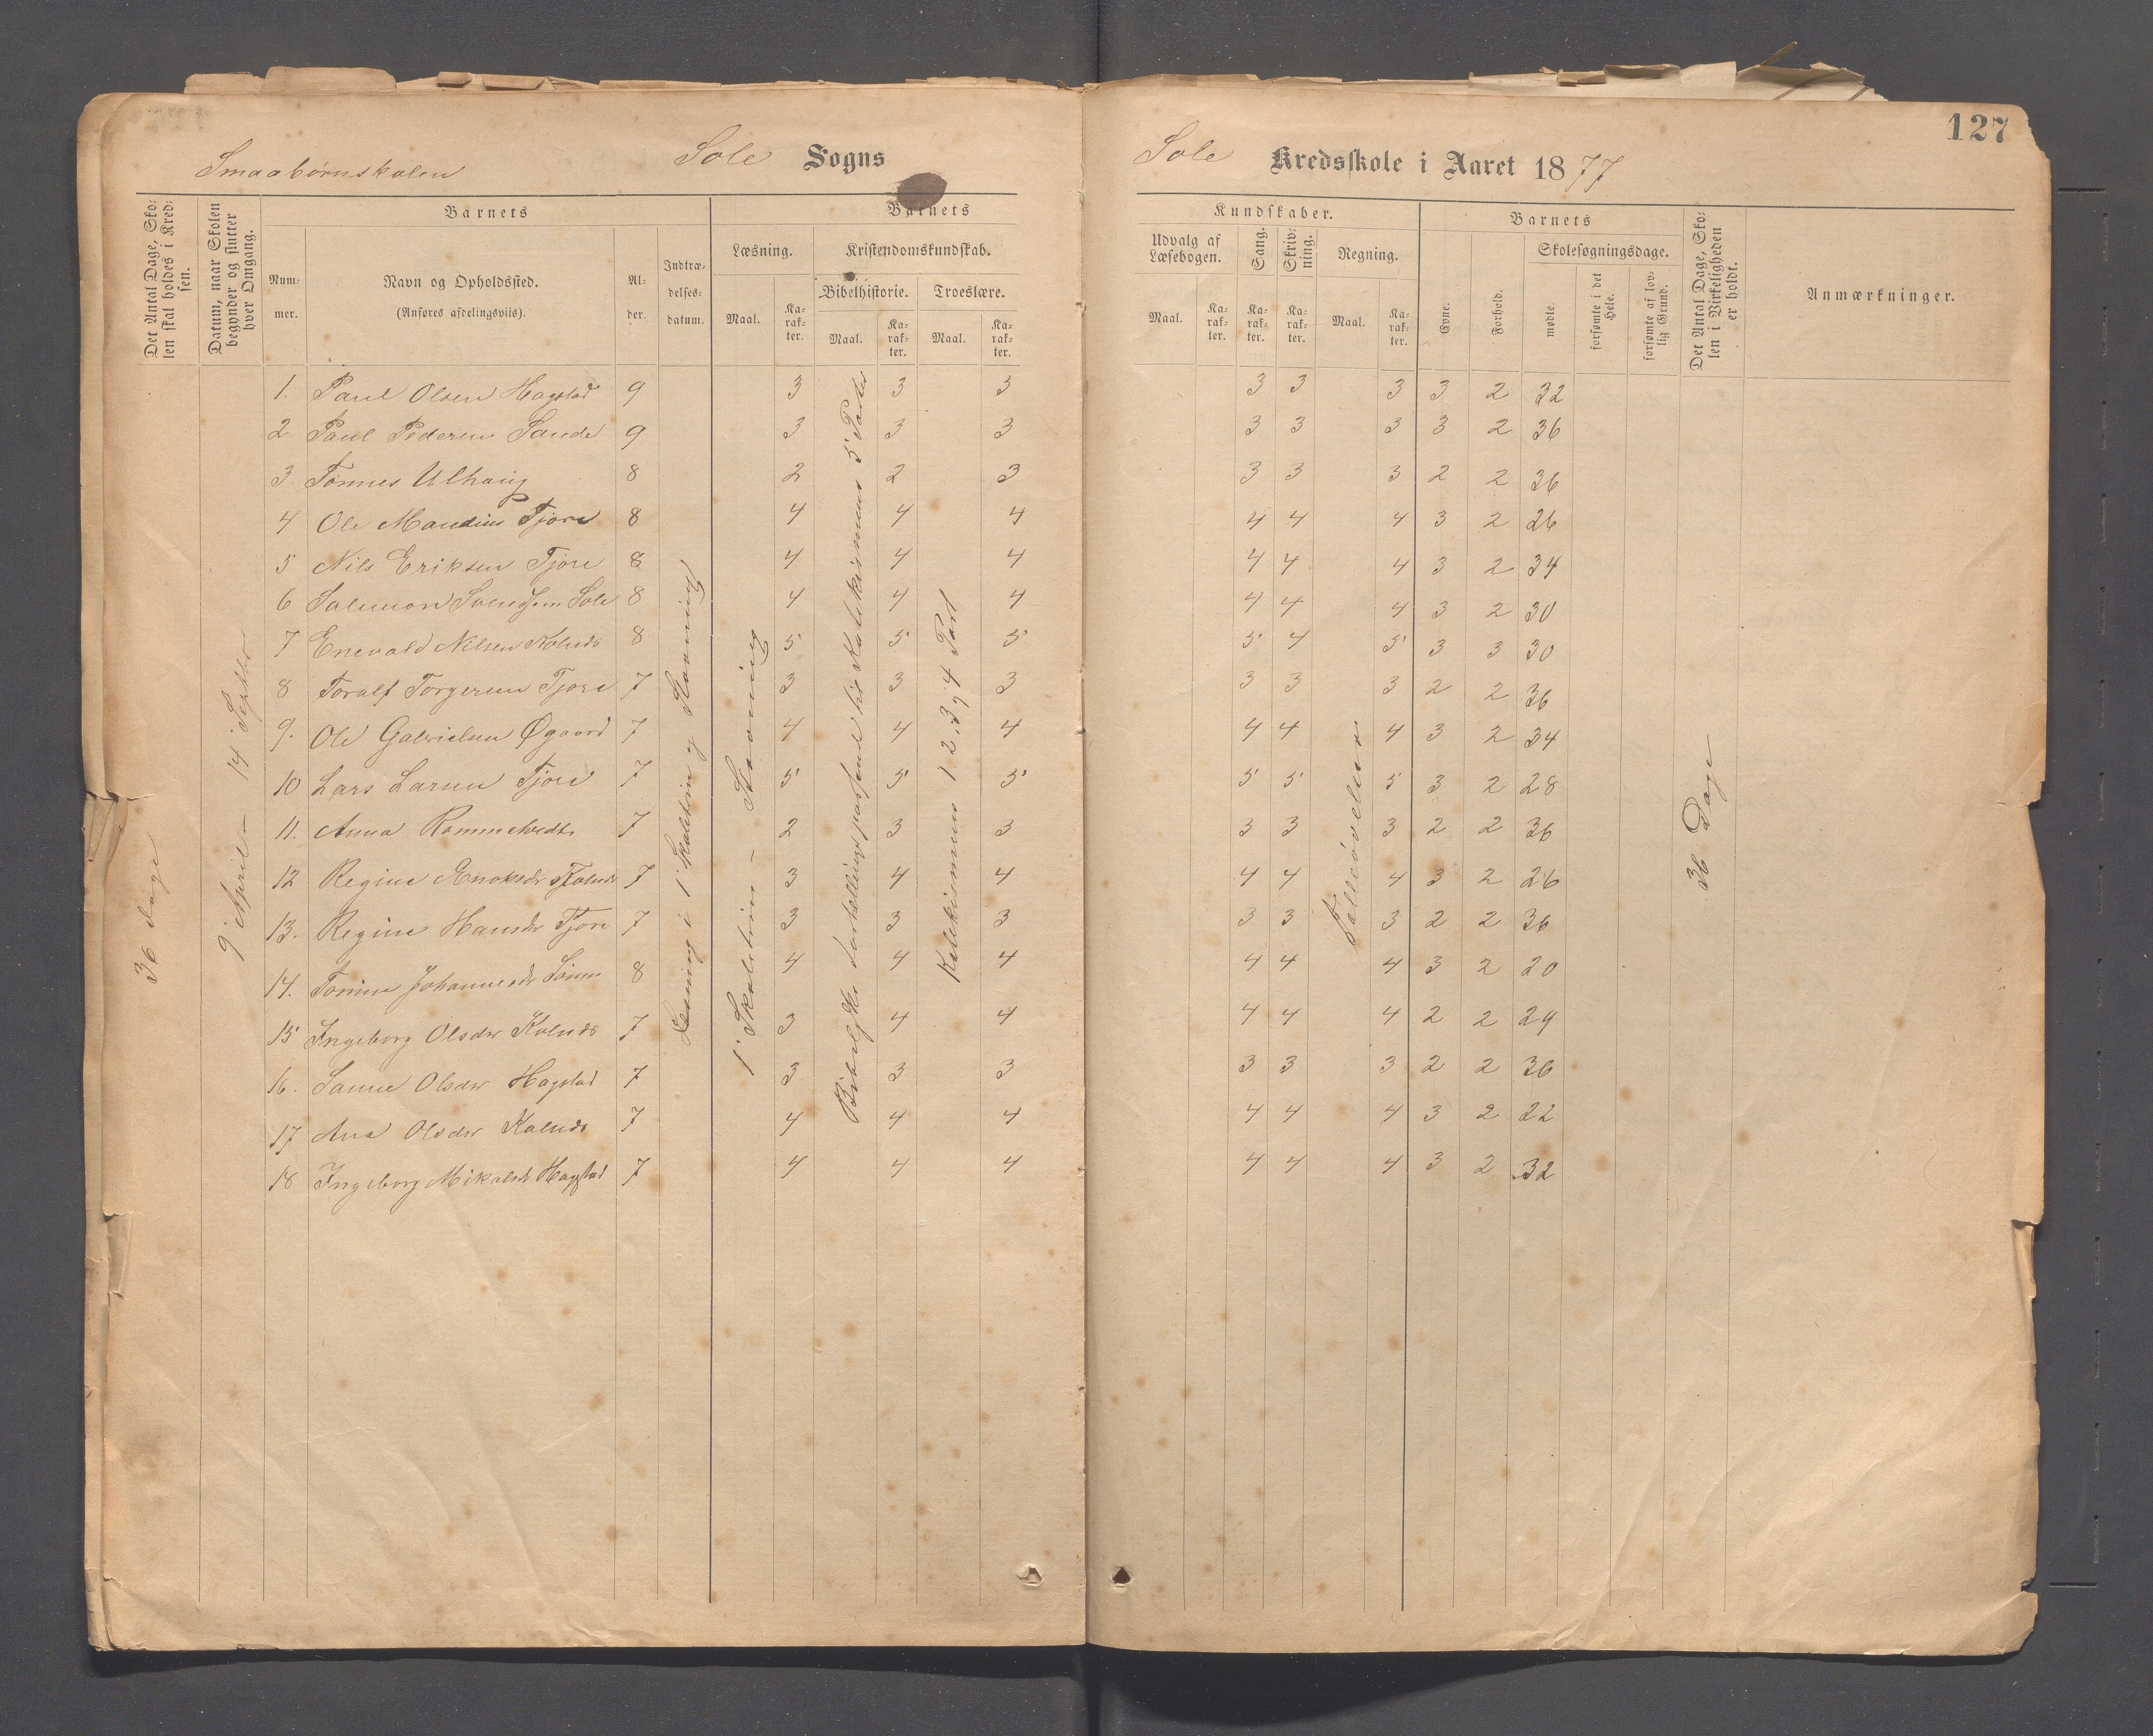 127
Smaabørnskolen
Sole Sogns
Sole Kredsskole i Aaret 1877
Det Antal Dage, Skolen skal holdes i Kredsen.
Datum, naar Skolen begynder og slutter hver Omgang.
Barnets
Nummer.
Navn og Opholdssted.
(Anføres afdelingsviis).
Alder.
Indtrædelsesdatum.
Barnets
Læsning.
Maal.
Karakter.
Kristendomskundskab.
Bibelhistorie.
Maal.
Karakter.
Troeslære.
Maal.
Karakter.
Kundskaber.
Udvalg af Læsebogen.
Maal.
Karakter.
Sang.
Karakter.
Skrivning.
Karakter.
Regning.
Maal.
Karakter.
Barnets
Evne.
Forhold.
Skolesøgningsdage.
mødte.
forsømte i det Hele.
forsømte af lovlig Grund.
Det Antal Dage, Skolen i Virkeligheden er holdt.
Anmærkninger.
36 dage
9 April – 14 Septbr
Læsning i 1 Skoletrin og Stavning
1 Skoletrin – Stavning
Katekismen 1 2, 3 og 4 Part
36 Dage
1. Paul Olsen Hagstad 9 3 3 3 3 3 3 3 2 32
2 Paul Pedersen Sande 9 3 3 3 3 3 3 3 2 36
3 Tønnes Ulhaug 8 2 2 3 3 3 3 2 2 36
4 Ole Maudius Tjore 8 4 4 4 4 4 4 3 2 26
5 Nils Eriksen Tjore 8 4 4 4 4 4 4 3 2 34
6 Salemon Svendsen Sole 8 4 4 4 4 4 4 3 2 30
7 Enevald Nilsen Kolneds 8 5 5 5 5 4 5 3 3 30
8 Toralf Torgersen Tjore 7 3 3 3 3 3 3 2 2 36
9. Ole Gabrielsen Øgaard 7 4 4 4 4 4 4 3 2 34
10 Lars Larsen Tjore 7 5 5 5 5 5 5 3 2 28
11. Anna Rommetvedt 7 2 3 3 3 3 3 2 2 36
12 Regine 7 3 4 4 4 4 4 3 2 26
13. Regine Hansdr Tjore 7 3 3 3 3 3 3 2 2 36
14. Johannesdr 8 4 4 4 4 4 4 3 2 20
15 Ingeborg Olsdr Kolneds 7 3 4 4 4 4 4 2 2 29
16. Sanne Olsdr Hagstad 7 3 3 3 3 3 3 2 2 36
17 Ana Olsdr Kolneds 7 4 4 4 4 4 4 3 2 22
18 Ingeborg Mikalsd Hagstad 7 4 4 4 4 4 4 3 2 32